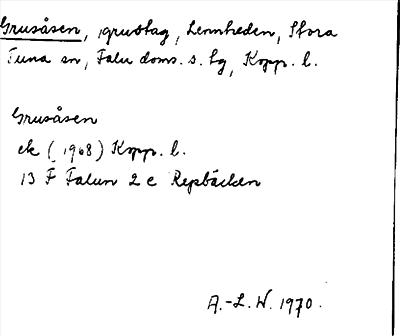 Grusåsen, grustag, Lennheden, Stora
Tuna sn, Falu doms. s. lg, Kopp. l.
Grusåsen
ek (1968) Kopp. l.
13 F Falun 2 c Repbäcken
A.-L. W. 1970.